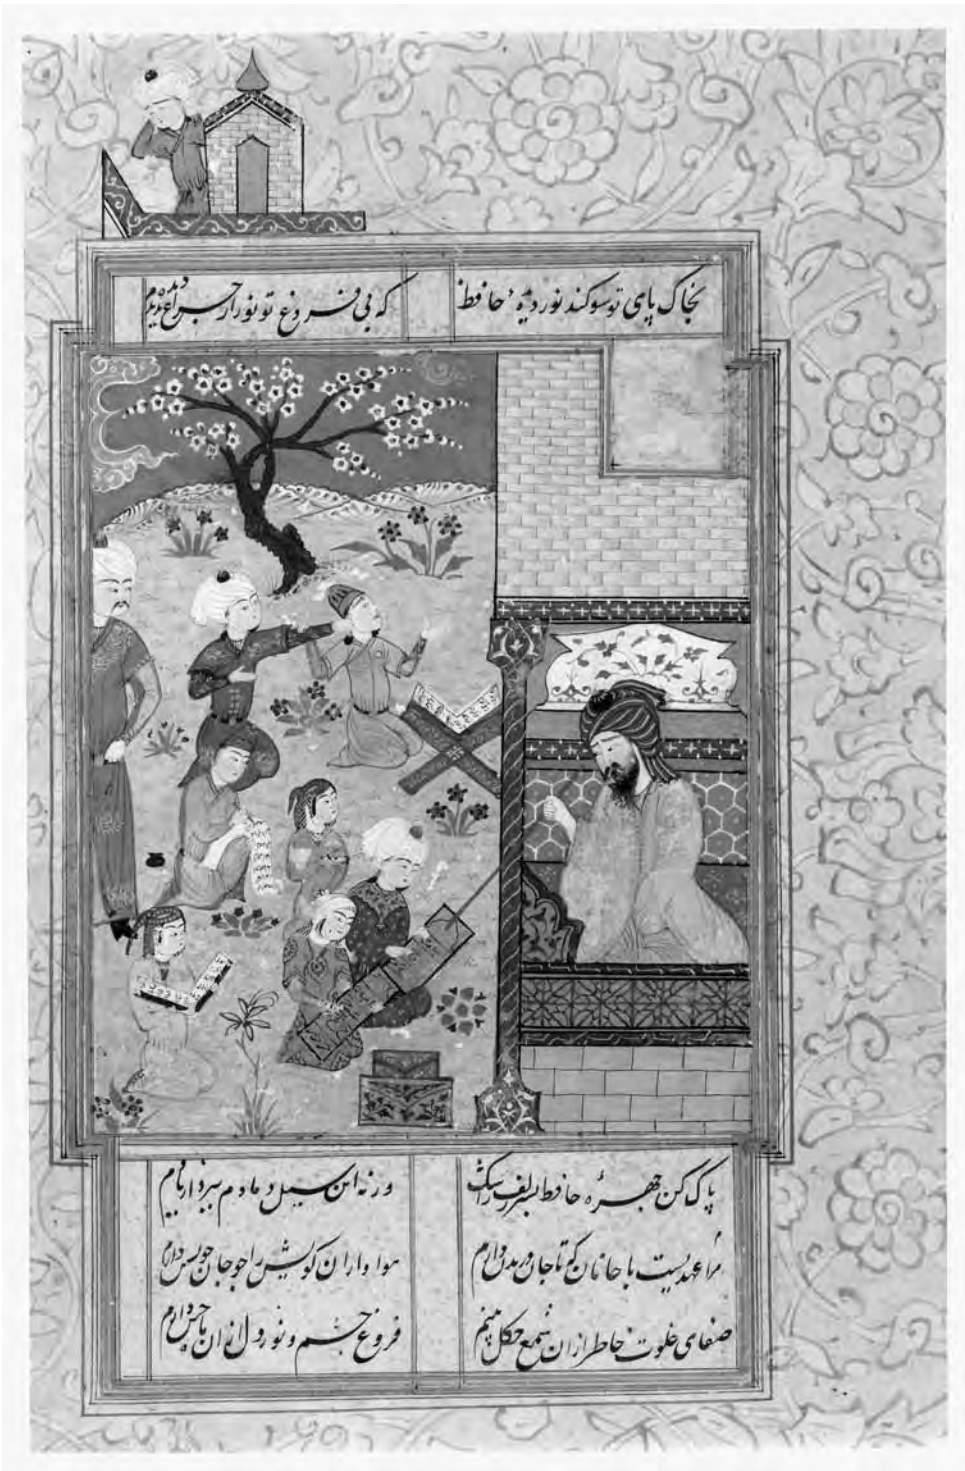 بخاک پای تو سوکند نور دیده حافظ که بی فروغ تو نور از چراغ دیده
پاک کن چهرهٔ حافظ بسر زلف ز اشک ورنه این سیل دمادم ببرد
مرا عهدیست با جانان که تا جان در بدن دارم هواداران کویش را چو جان خویش دارم
صفای خلوت خاطر از آن شمع چکل بینم فروغ چشم و نور دل از آن دارم